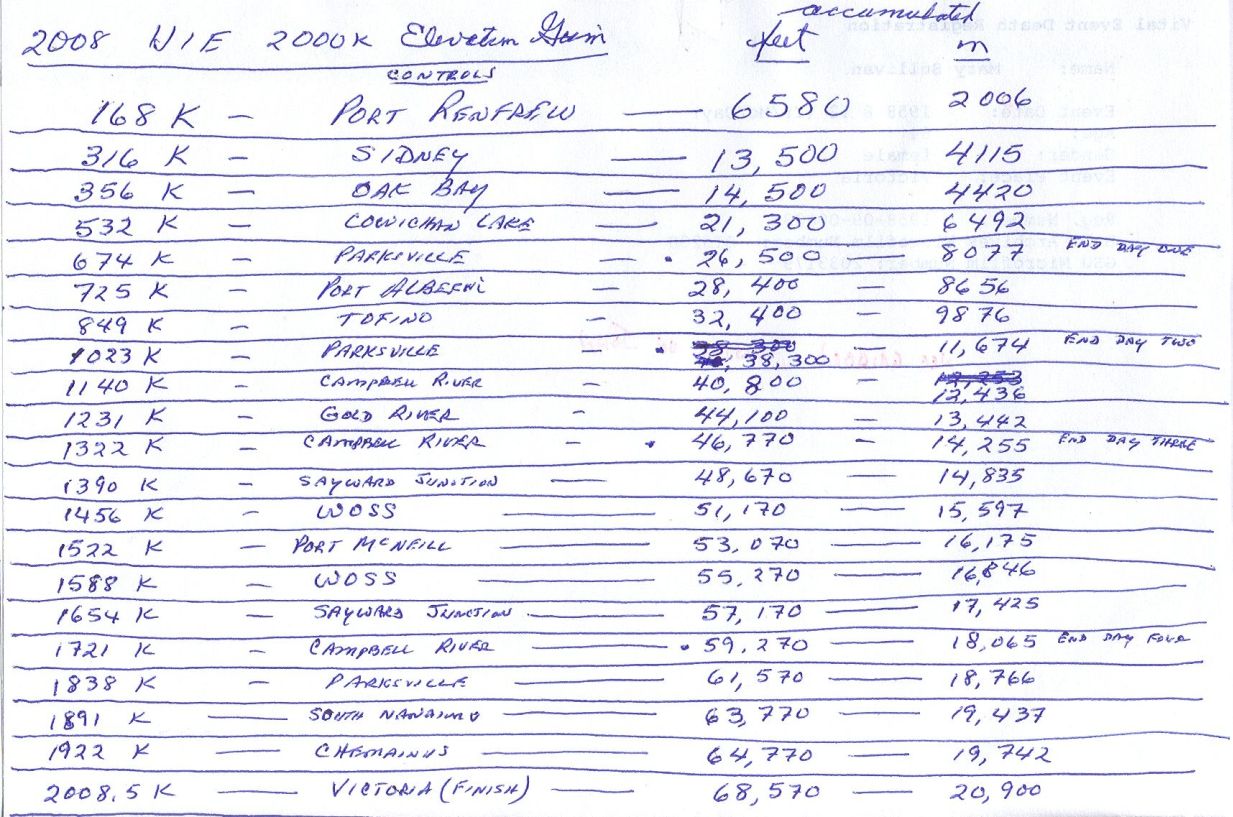 accumulated
2008 VIE 2000K Elevation Gain feet m
CONTROLS
168 K — PORT RENFREW — 6580 2006
316 K — SIDNEY — 13,500 4115
356 K — OAK BAY — 14,500 4420
532 K — COWICHAN LAKE — 21,300 6492
674 K — PARKSVILLE — • 26,500 — 8077 END DAY ONE
725 K — PORT ALBERNI — 28,400 — 8656
849 K — TOFINO — 32,400 — 9876
1023 K — PARKSVILLE — • 38,300 — 11,674 END DAY TWO
1140 K — CAMPBELL RIVER — 40,800 — 12,436
1231 K — GOLD RIVER — 44,100 — 13,442
1322 K — CAMPBELL RIVER — • 46,770 — 14,255 END DAY THREE
1390 K — SAYWARD JUNCTION — 48,670 — 14,835
1456 K — WOSS — 51,170 — 15,597
1522 K — PORT McNEILL — 53,070 — 16,175
1588 K — WOSS — 55,270 — 16,846
1654 K — SAYWARD JUNCTION — 57,170 — 17,425
1721 K — CAMPBELL RIVER — • 59,270 — 18,065 END DAY FOUR
1838 K — PARKSVILLE — 61,570 — 18,766
1891 K — SOUTH NANAIMO — 63,770 — 19,437
1922 K — CHEMAINUS — 64,770 — 19,742
2008.5 K — VICTORIA (FINISH) — 68,570 — 20,900